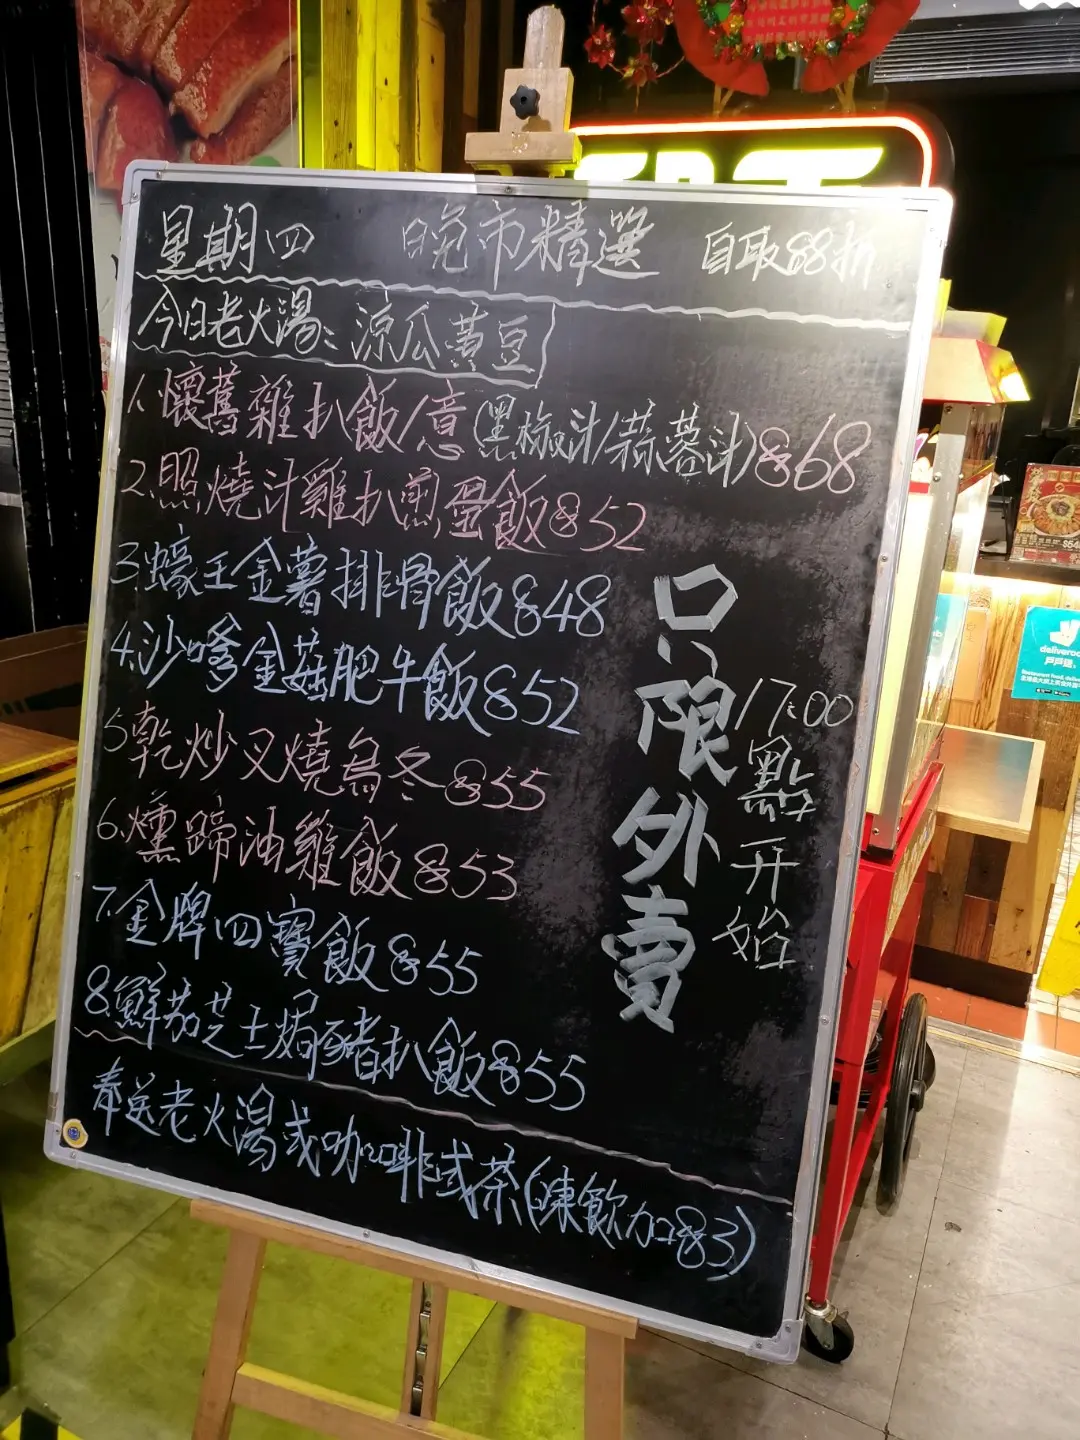 星期四 晚市精選 自取88折
今日老火湯：涼瓜黃豆
1.懷舊雜扒飯/意(黑椒汁/蒜蓉汁)$68
2.照燒汁雞扒煎蛋飯$52
3.蠔王金薯排骨飯$48
4.沙嗲金菇肥牛飯$52
5.乾炒叉燒烏冬$55
6.燻蹄油雞飯$53
7.金牌四寶飯$55
8.鮮茄芝士焗豬扒飯$55
奉送老火湯或咖啡或茶(凍飲加$3)
只限外賣
17:00點開始
deliveroo
戶戶送